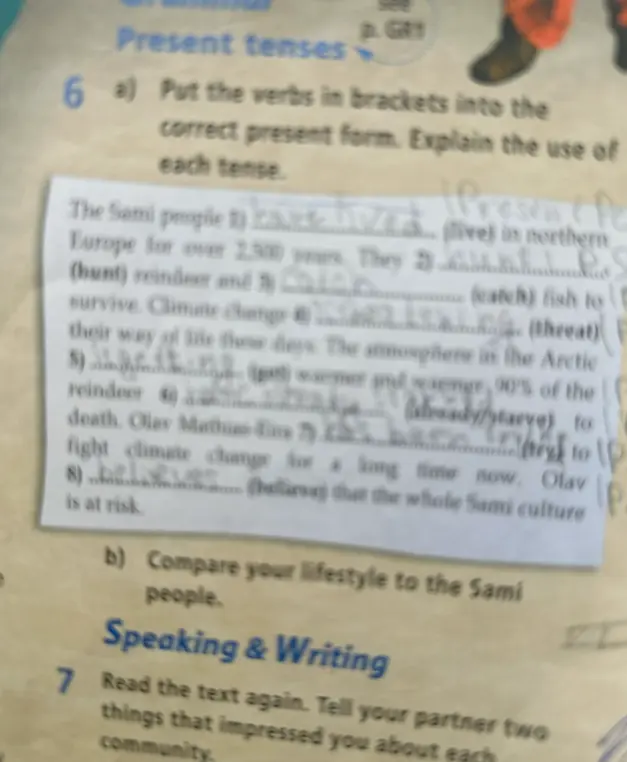 Grammar
see
p. GR1
Present tenses
6 a) Put the verbs in brackets into the
correct present form. Explain the use of
each tense.
The Sami people 1) have lived (live) in northern
Europe for over 2,500 years. They 2) hunt
(hunt) reindeer and 3) catch (catch) fish to
survive. Climate change 4) (threat)
their way of life these days. The atmosphere in the Arctic
5) (get) warmer and warmer. 90% of the
reindeer 6) (already/starve) to
death. Olav 7) has been (try) to
fight climate change for a long time now. Olav
8) believes (believe) that the whole Sami culture
is at risk.
b) Compare your lifestyle to the Sami
people.
Speaking & Writing
7 Read the text again. Tell your partner two
things that impressed you about each
community.